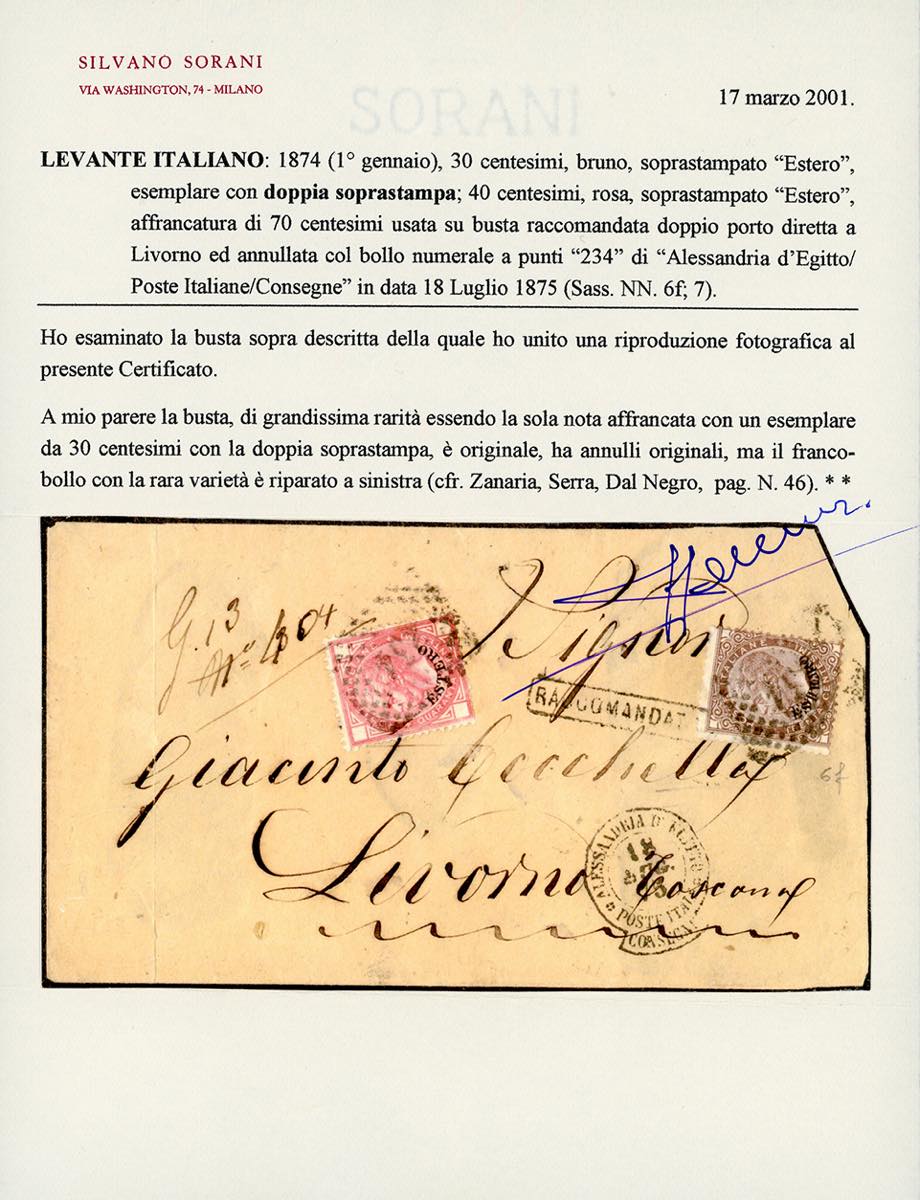 SILVANO SORANI
VIA WASHINGTON, 74 - MILANO
SORANI
17 marzo 2001.
LEVANTE ITALIANO: 1874 (1° gennaio), 30 centesimi, bruno, soprastampato “Estero”,
esemplare con doppia soprastampa; 40 centesimi, rosa, soprastampato “Estero”,
affrancatura di 70 centesimi usata su busta raccomandata doppio porto diretta a
Livorno ed annullata col bollo numerale a punti “234” di “Alessandria d’Egitto/
Poste Italiane/Consegne” in data 18 Luglio 1875 (Sass. NN. 6f; 7).
Ho esaminato la busta sopra descritta della quale ho unito una riproduzione fotografica al
presente Certificato.
A mio parere la busta, di grandissima rarità essendo la sola nota affrancata con un esemplare
da 30 centesimi con la doppia soprastampa, è originale, ha annulli originali, ma il franco-
bollo con la rara varietà è riparato a sinistra (cfr. Zanaria, Serra, Dal Negro, pag. N. 46). * *
G. 13
Signor
ESTERO
RACCOMANDAT
Giacinto Cecchella
6f
ALESSANDRIA D' EGITTO
18
Livorno Toscana
POSTE ITAL
CONSEGN